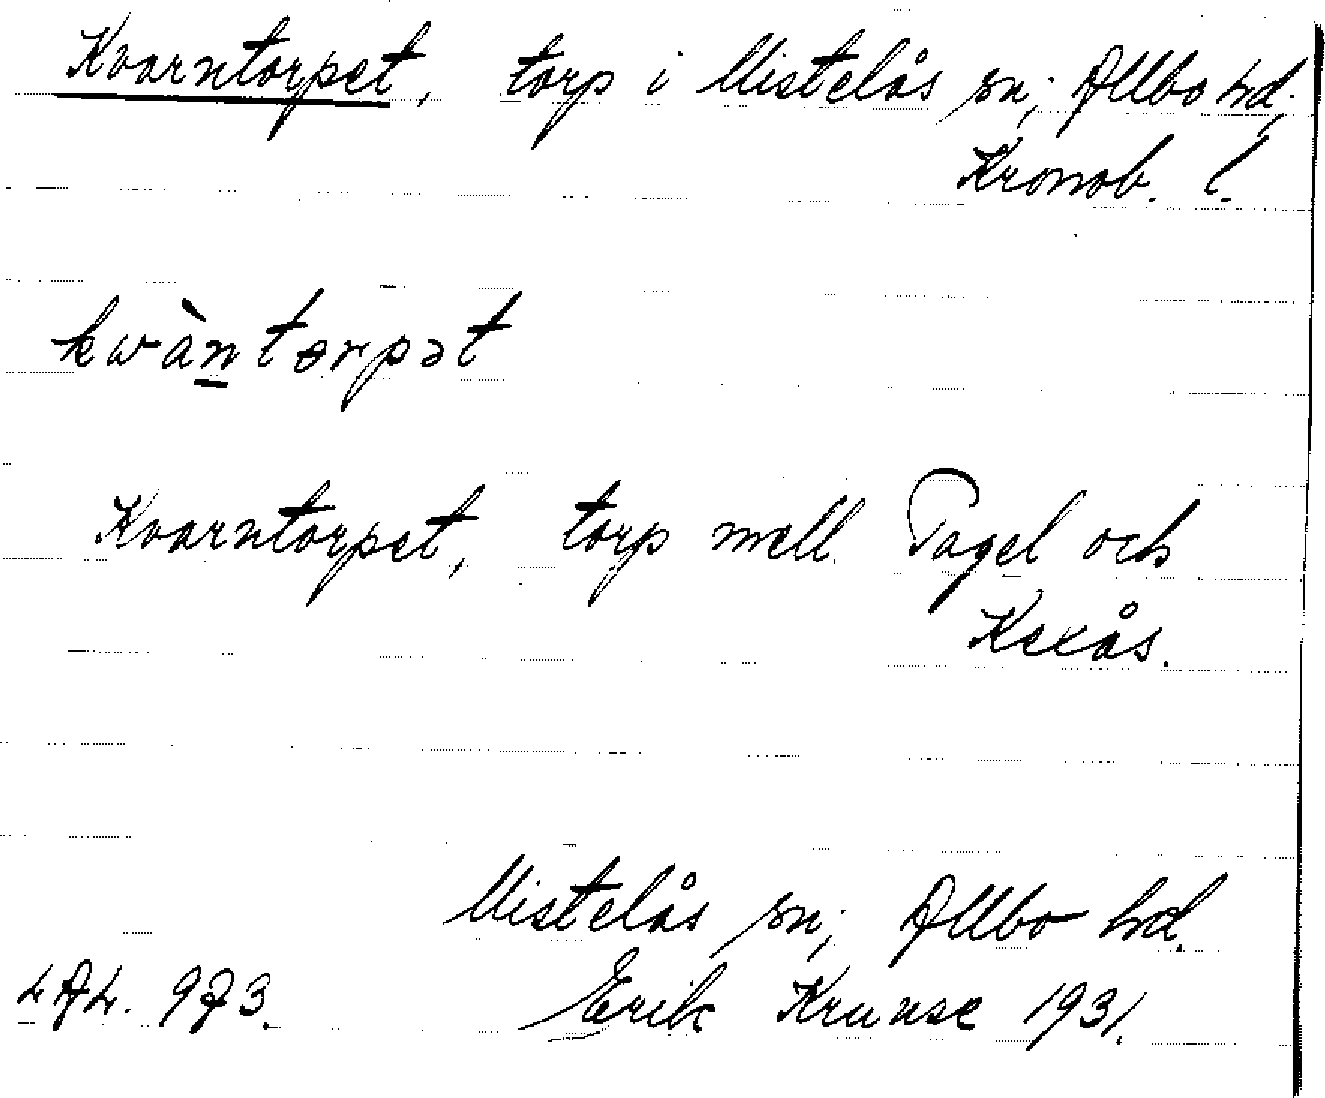 Kvarntorpet, torp i Mistelås sn; Allbo hd;
Kronob. l.
kwàntorpət
Kvarntorpet, torp mell Tagel och
Kexås.
Mistelås sn; Allbo hd.
Erik Kruuse 1931.